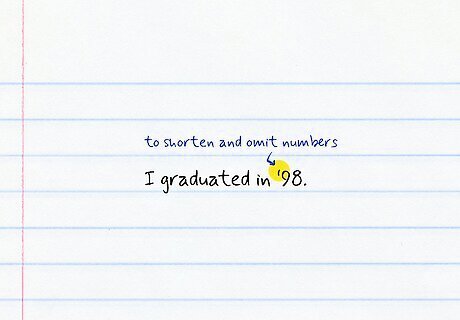 to shorten and omit numbers
I graduated in '98.